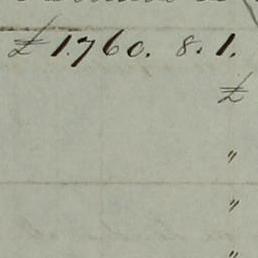 £ 1.760. 8. 1.
£
"
"
"